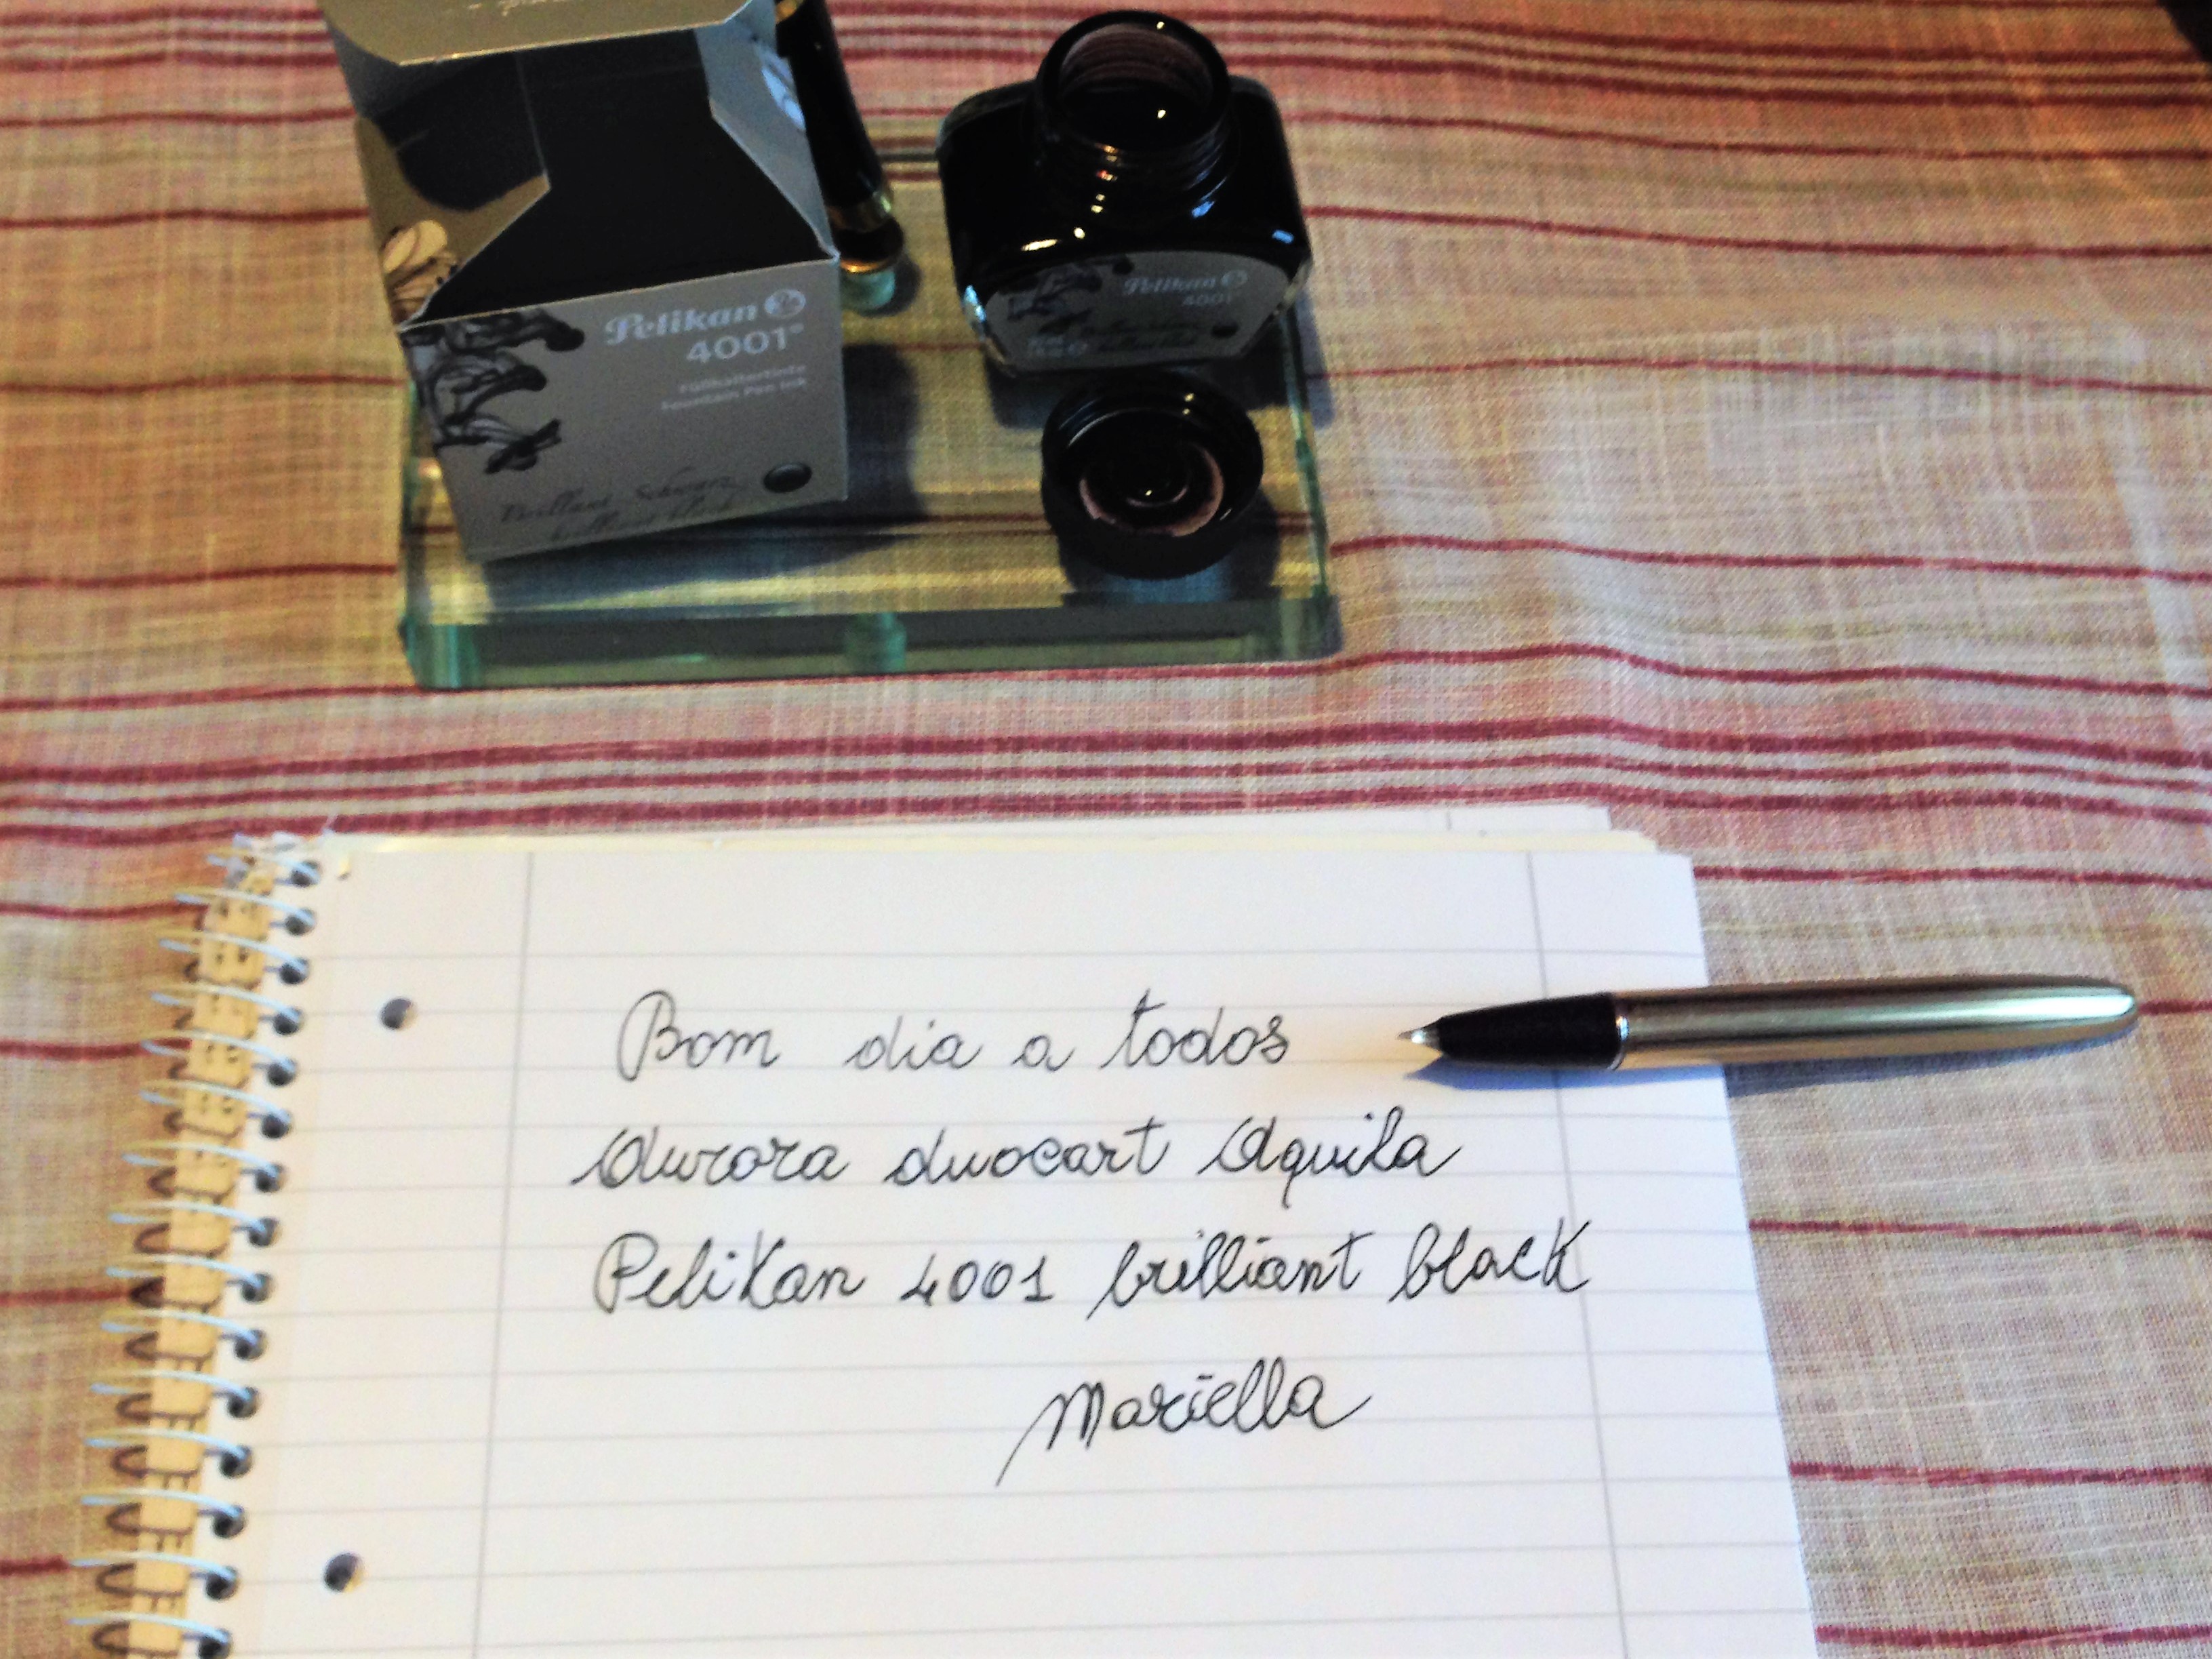 Pelikan
4001®
Füllhaltertinte
Fountain Pen Ink
Brillant-Schwarz
brilliant black
Pelikan
4001®
Bom dia a todos
Aurora duocart Aquila
Pelikan 4001 brilliant black
Mariella